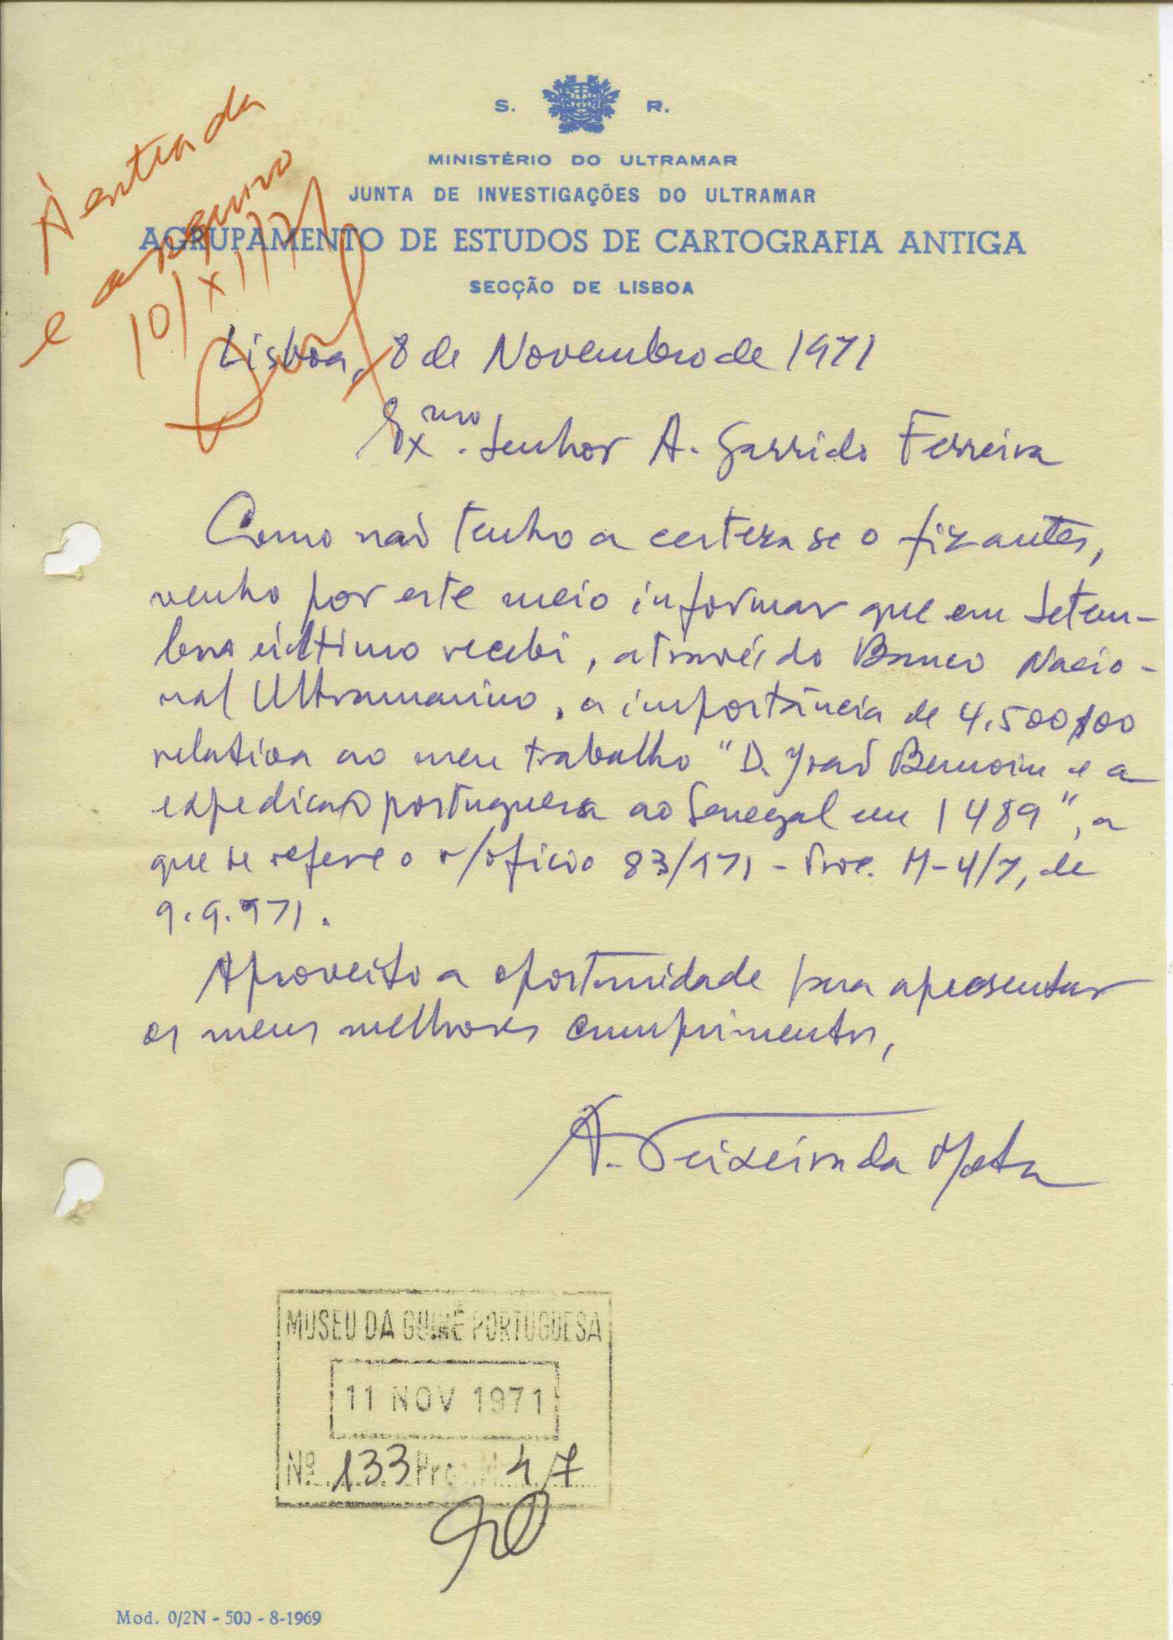 S. R.
MINISTÉRIO DO ULTRAMAR
JUNTA DE INVESTIGAÇÕES DO ULTRAMAR
AGRUPAMENTO DE ESTUDOS DE CARTOGRAFIA ANTIGA
SECÇÃO DE LISBOA
À entrada
e arquivo
10/XI/71
Lisboa, 8 de Novembro de 1971
Exmo. Senhor A. Garrido Ferreira
Como não tenho a certeza se o fiz antes,
venho por este meio informar que em Setem-
bro último recebi, através do Banco Nacio-
nal Ultramarino, a importância de 4.500$00
relativa ao meu trabalho "D. João Bemoim e a
expedição portuguesa ao Senegal em 1489", a
que se refere o v/ofício 83/971 - Proc. M-4/7, de
9.9.971.
Aproveito a oportunidade para apresentar
os meus melhores cumprimentos,
A. Teixeira da Mota
MUSEU DA GUINÉ PORTUGUESA
11 NOV 1971
Nº 133 Proc. M 4/7
Mod. 0/2N - 500 - 8-1969